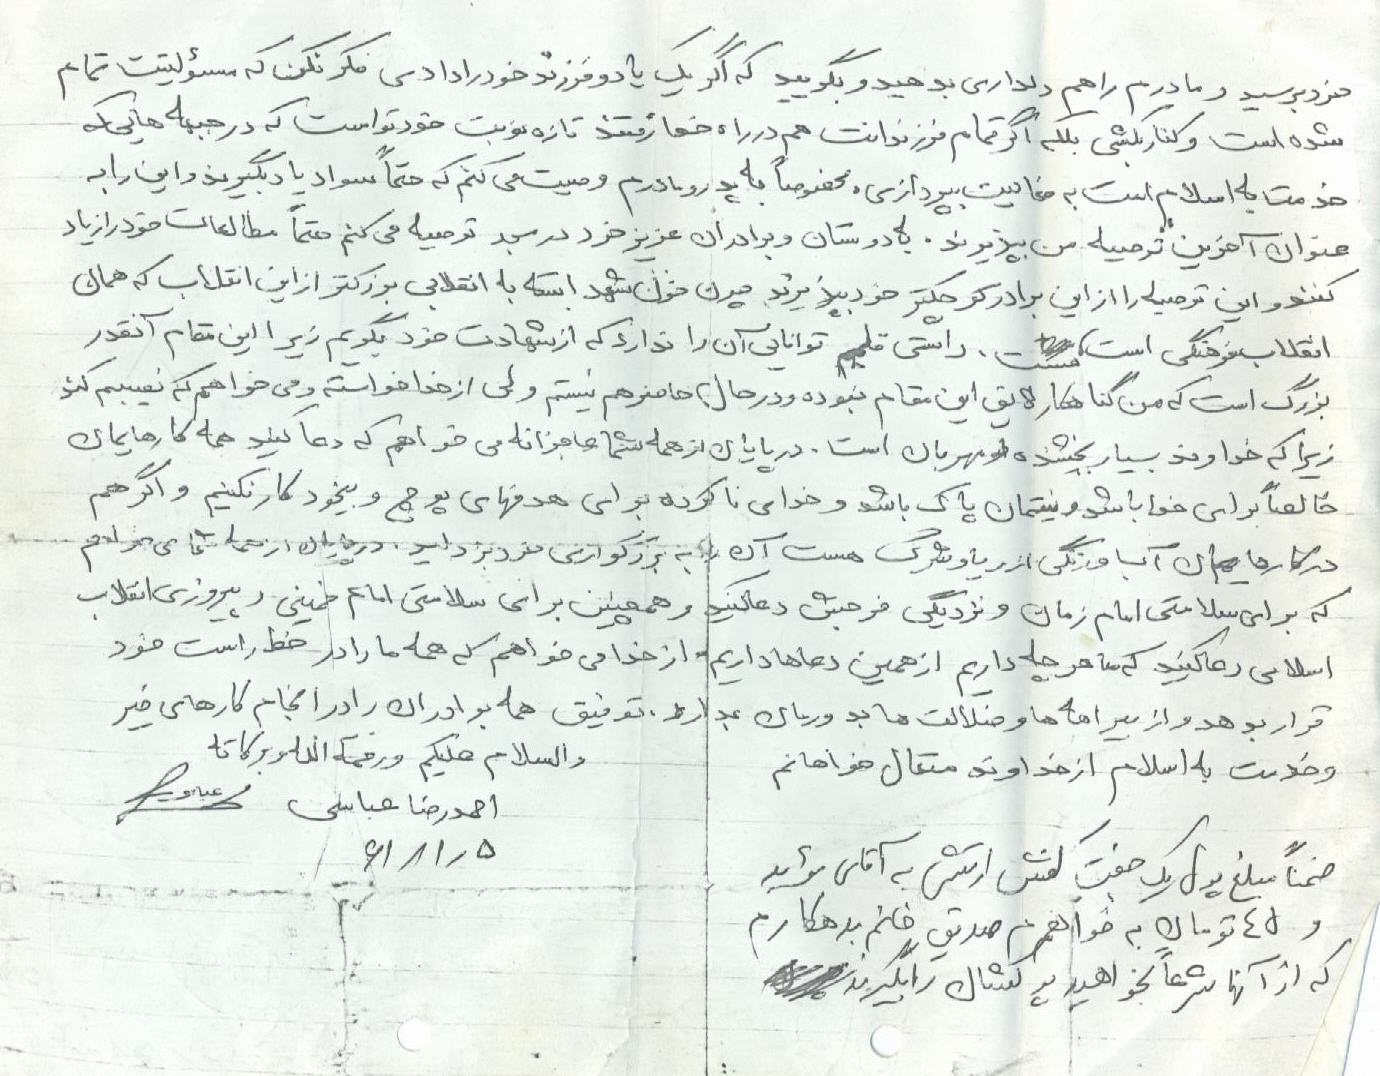 خود برسید و مادرم را هم دلداری بدهید و بگویید که اگر یک یا دو فرزند خود را دادی فکر نکن که مسؤلیتت تمام
شده است و کنار بکشی بلکه اگر تمام فرزندانت هم در راه خدا رفتند تازه نوبت خود تو است که در جبهه هایی که
خدمت به اسلام است به فعالیت بپردازی. مخصوصاً به پدر و مادرم وصیت می کنم که حتماً سواد یاد بگیرند و این را به
عنوان آخرین توصیه من بپذیرند. به دوستان و برادران عزیز خود در مسجد توصیه می کنم حتماً مطالعات خود را زیاد
کنند و این توصیه را از این برادر کوچکتر خود بپذیرند چون خون شهد ابسته به انقلابی بزرگتر از این انقلاب که همان
انقلاب فرهنگی است. راستی قلمم توانایی آن را ندارد که از شهادت خود بگویم زیرا این مقام آنقدر
بزرگ است که من گناهکار لایق این مقام نبوده و در حال حاضر هم نیستم ولی از خدا خواسته و می خواهم که نصیبم کند
زیرا که خداوند بسیار بخشنده و مهربان است. در پایان از همه شما عاجزانه می خواهم که دعا کنید همه کارهایمان
خالصاً برای خدا باشد و نیتمان پاک باشد و خدای ناکرده برای هدفهای پوچ و بیخود کار نکنیم و اگر هم
در کارهایمان آب و رنگی از ریا و شرک هست آن را به بزرگواری خود بزداید. در پایان از همه شما می خواهم
که برای سلامتی امام زمان و نزدیکی فرجش دعا کنید و همچنین برای سلامتی امام خمینی و پیروزی انقلاب
اسلامی دعا کنید که ما هر چه داریم از همین دعاها داریم. از خدا می خواهم که همه ما را در خط راست خود
قرار بدهد و از بیراهه ها و ضلالت ها بدورمان بدارد. توفیق همه برادران را در انجام کارهای خیر
و خدمت به اسلام از خداوند متعال خواهانم
والسلام علیکم ورحمة الله وبرکاته
احمدرضا عباسی
۶۱/۱/۵
ضمناً مبلغ پول یک جفت کفش ارتشی به آقای مؤید
و ٤٥ تومان به خواهرم صدیق خانم بدهکارم
که از آنها شرعاً بخواهید پولشان را بگیرند